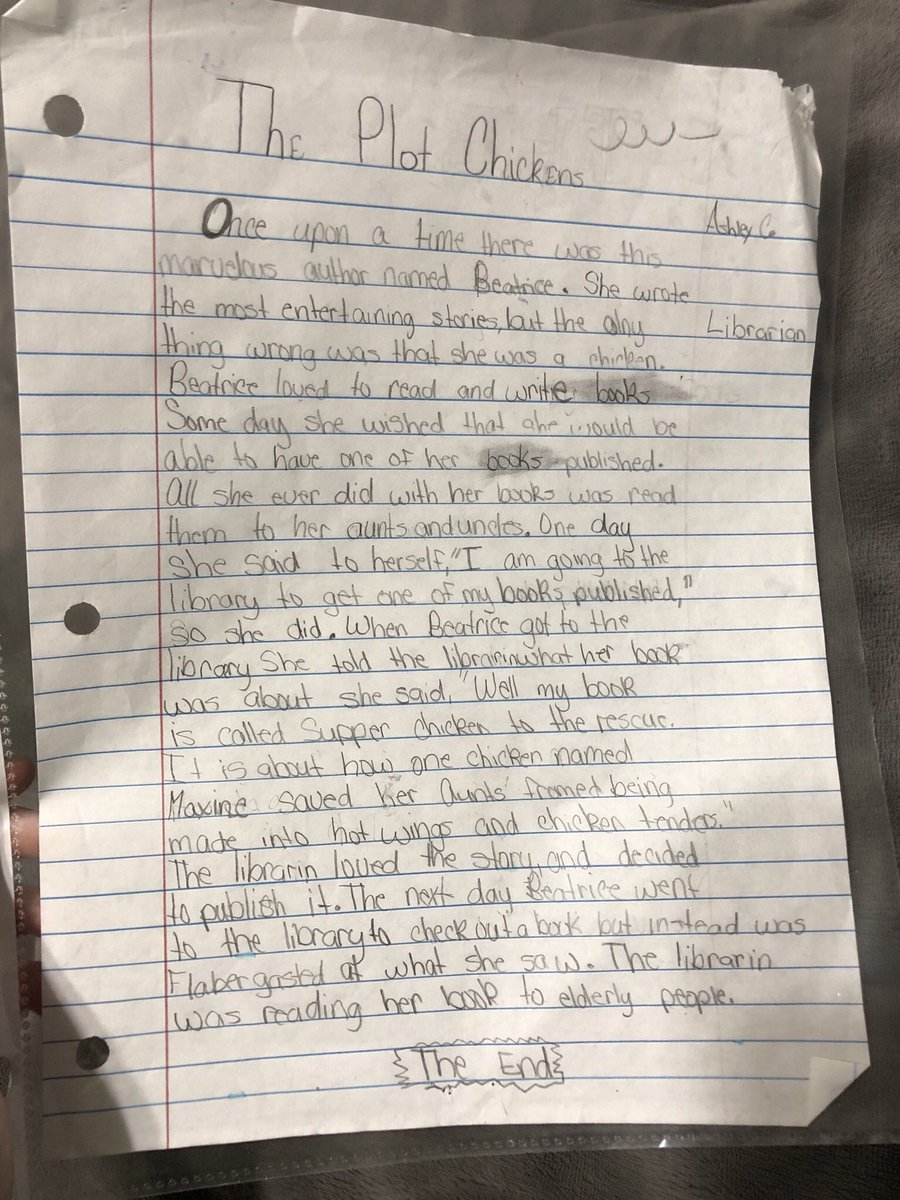 The Plot Chickens
Ashley C
Once upon a time there was this
marvelous author named Beatrice. She wrote
the most entertaining stories, but the alny
Librarian
thing wrong was that she was a chicken.
Beatrice loved to read and write books
Some day she wished that she would be
able to have one of her books published.
All she ever did with her books was read
them to her aunts and uncles. One day
she said to herself, "I am going to the
library to get one of my books published,"
so she did. When Beatrice got to the
library She told the librarin what her book
was about she said, "Well my book
is called Supper chicken to the rescue.
It is about how one chicken named
Maxine saved her Aunts fromed being
made into hot wings and chicken tenders."
The librarin loved the story, and decided
to publish it. The next day Beatrice went
to the library to check out a book but instead was
Flabergasted at what she saw. The librarin
was reading her book to elderly people.
The End